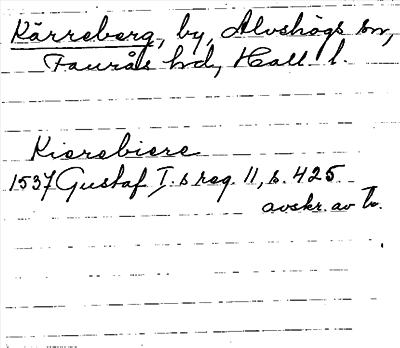 Kärreberg, by, Alvshögs sn,
Faurås hd, Hall. l.
Kierebiere
1537 Gustaf I.s reg. 11, s. 425
avskr. av